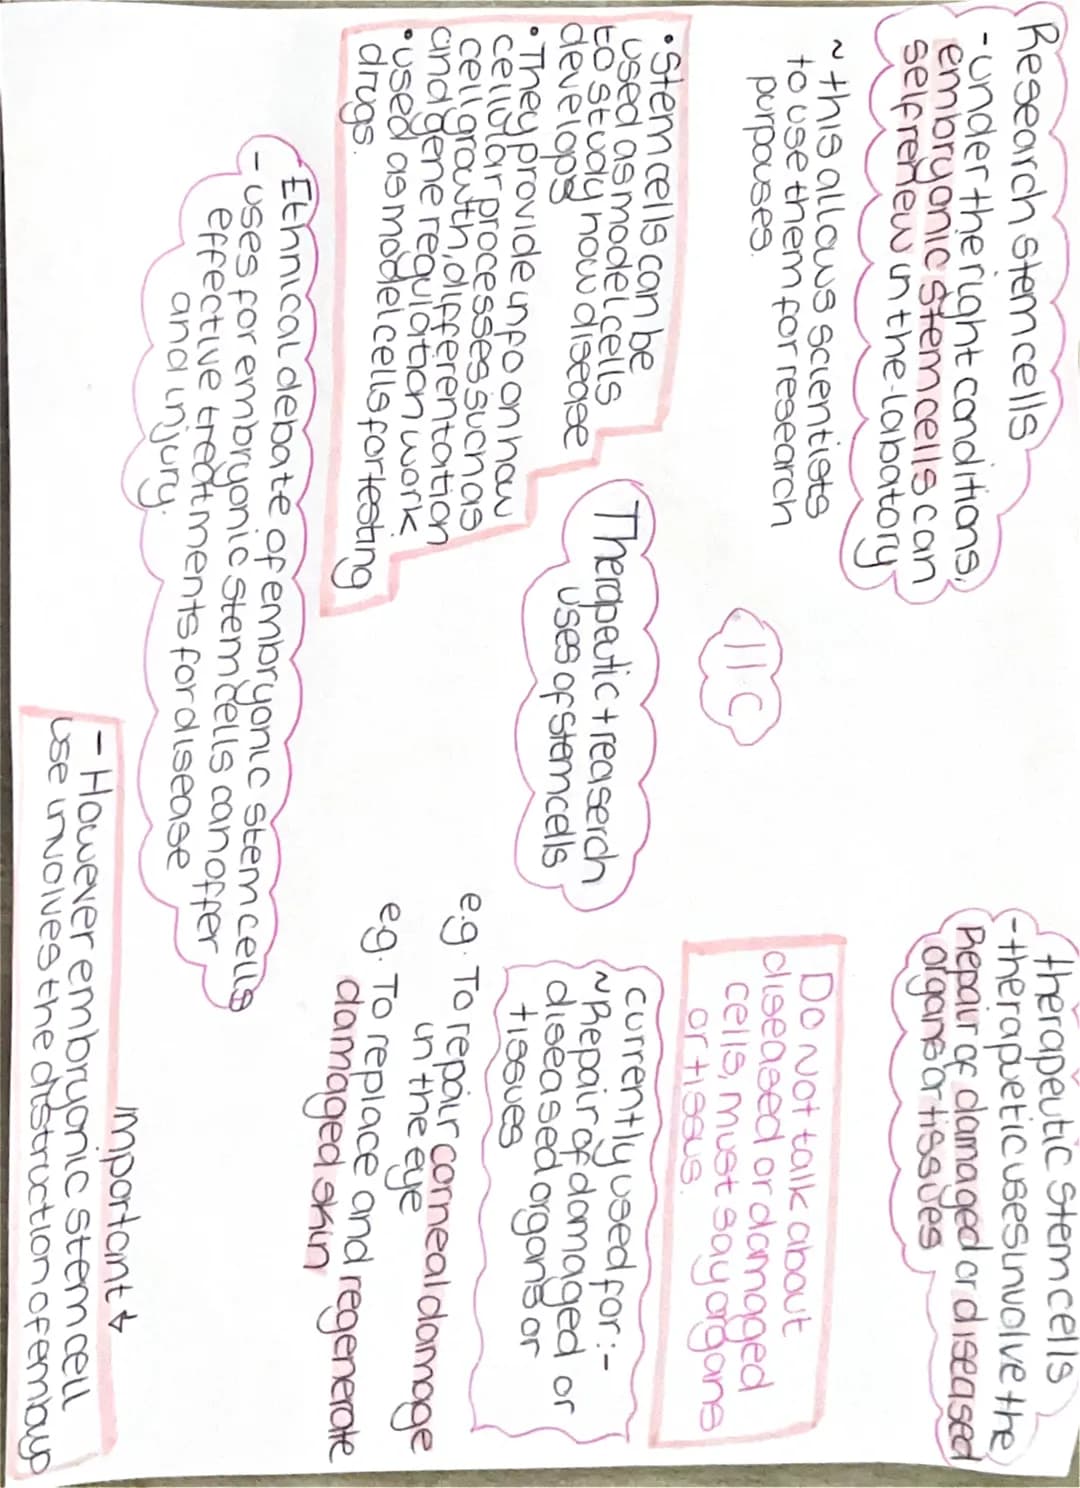 Research stem cells
- under the right conditions,
embryonic stem cells can
self renew in the labatory
~ this allows scientists
to use them for research
purpouses.
• Stem cells can be
used as model cells
to study how disease
develops
• They provide info on how
cellular processes such as
cell growth, differentation
and gene regulation work
• used as model cells for testing
drugs.
Ethnical debate of embryonic stem cells
- uses for embryonic stem cells can offer
effective treatments for disease
and injury.
11C
Therapeutic + reaserch
uses of stem cells
therapeutic stem cells
- therapuetic uses involve the
Repair of damaged or diseased
organs or tissues
Do not talk about
diseased or damaged
cells, must say organs
or tissus.
currently used for :-
~ Repair of damaged or
diseased organs or
tissues
e.g. To repair corneal damage
in the eye
e.g. To replace and regenerate
damaged skin
important ↓
- However embryonic stem cell
use involves the distruction of embayo